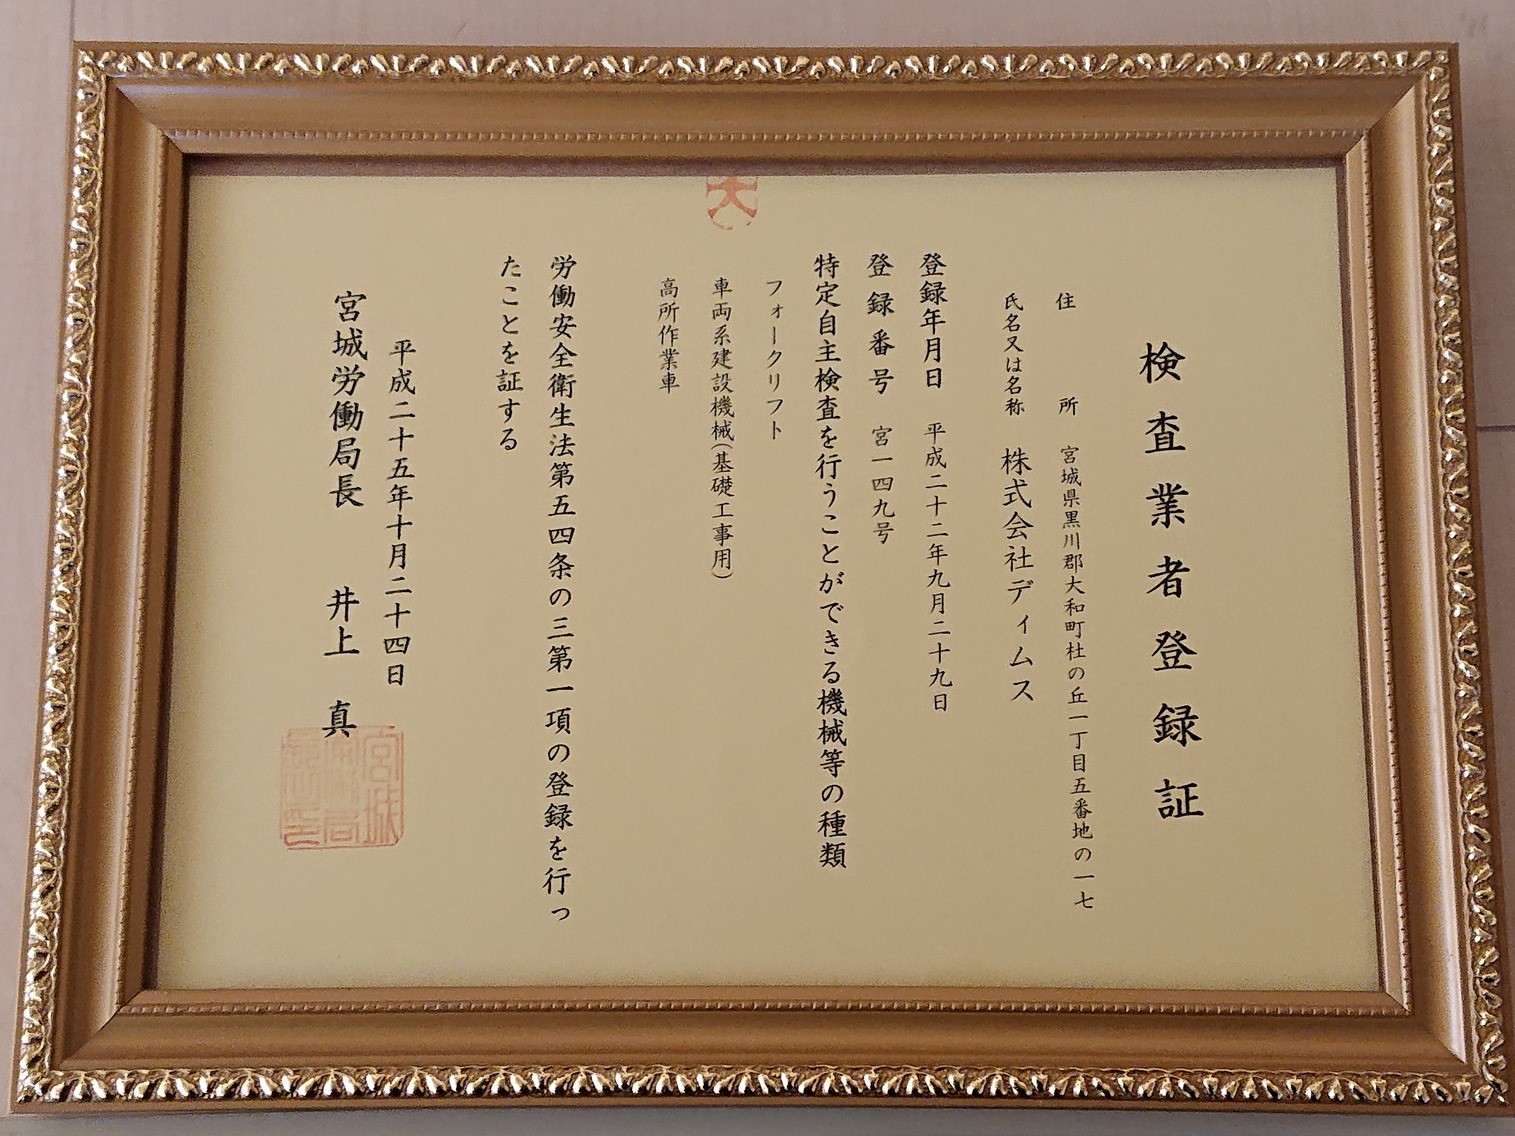 検査業者登録証
住所 宮城県黒川郡大和町杜の丘一丁目五番地の一七
氏名又は名称 株式会社ディムス
登録年月日 平成二十二年九月二十九日
登録番号 宮一四九号
特定自主検査を行うことができる機械等の種類
フォークリフト
車両系建設機械(基礎工事用)
高所作業車
労働安全衛生法第五四条の三第一項の登録を行っ
たことを証する
平成二十五年十月二十四日
宮城労働局長 井上 真